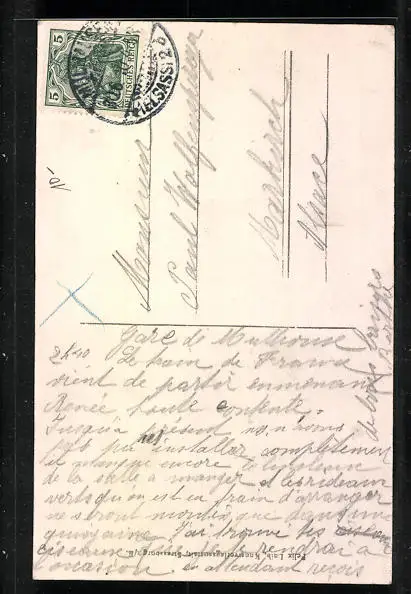 5 5
DEUTSCHES REICH
(ELSASS) 2
10-
Monsieur
Paul
Markirch
Alsace
Gare de Mulhouse
2h40 Le train de France
vient de partir emmenant
Renée toute contente.
Jusqu'à présent ns n'avons
pas pu ns installer complètement
il manque encore
de la salle à manger et les rideaux
verts qu'on est en train d'arranger
ne seront montés que dans une
quinzaine. J'ai trouvé les
ciseaux rendrai à
l'occasion. En attendant reçois
de bons baisers
Felix Luib, Kunstverlagsanstalt, Strassburg i/E.